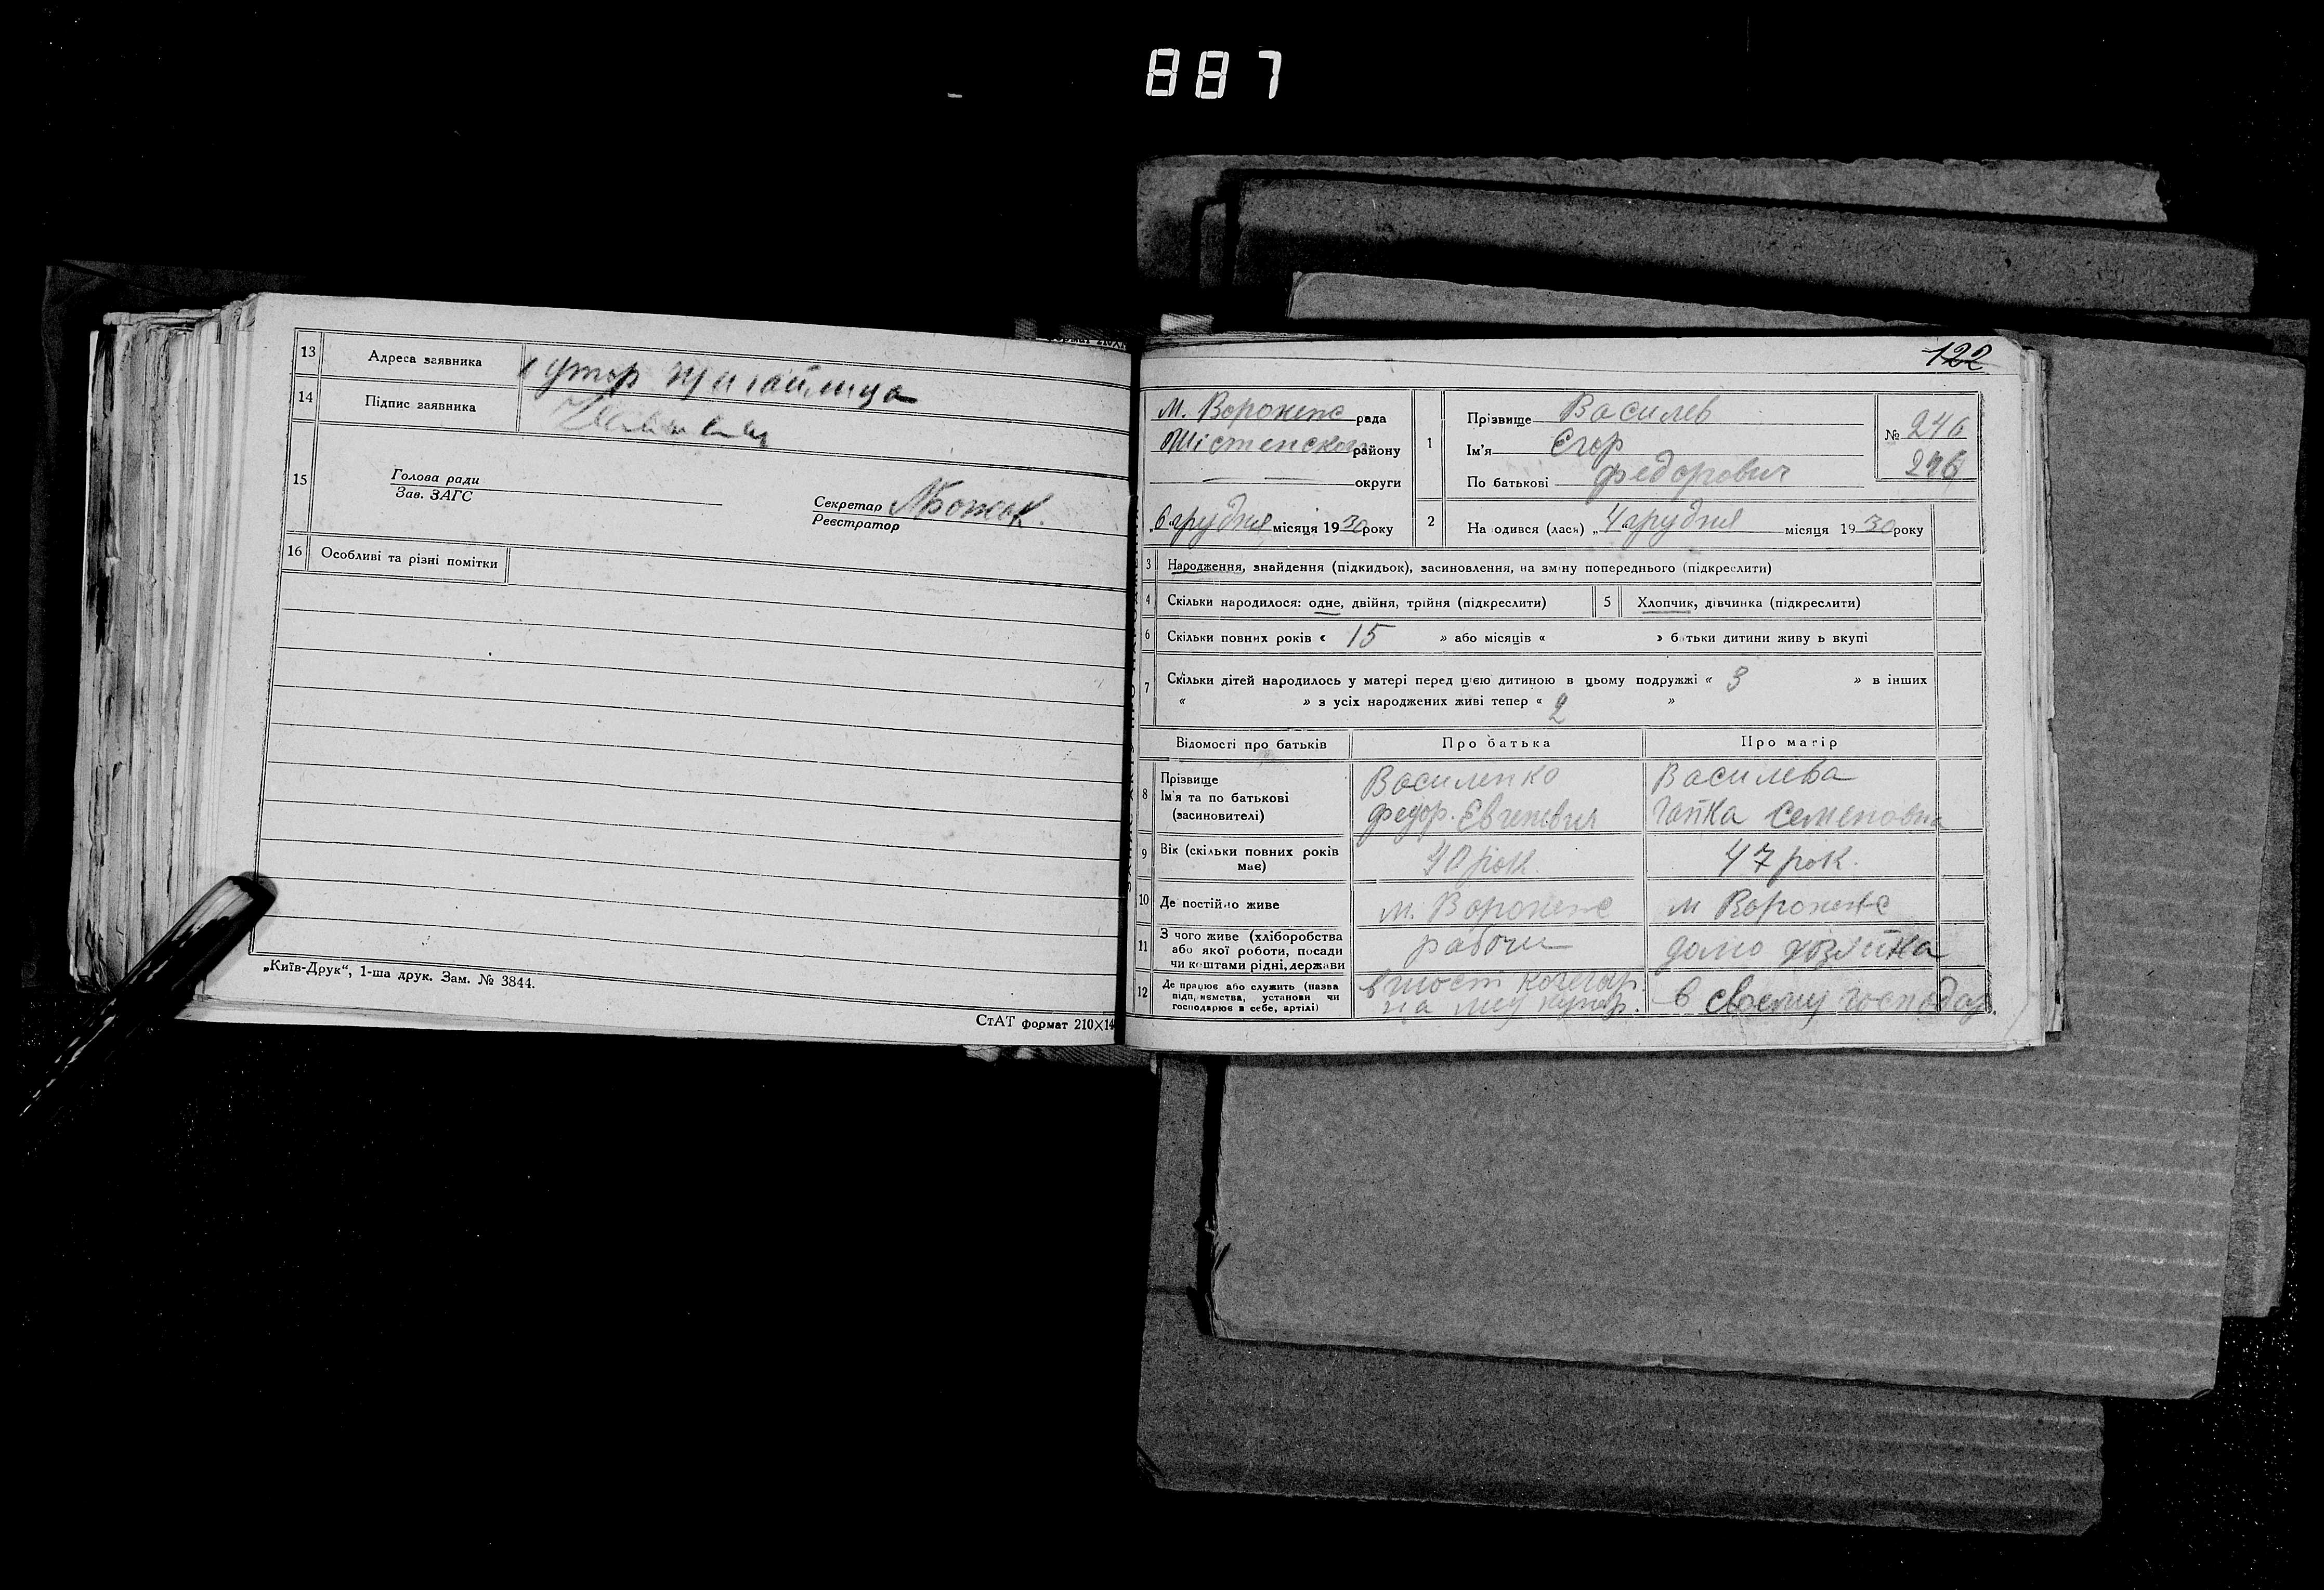 887
13 Адреса заявника хутор
14 Підпис заявника
15 Голова ради
Зав. ЗАГС
Секретар
Реєстратор
16 Особливі та різні помітки
„Київ-Друк“, 1-ша друк. Зам. № 3844.
СтАТ формат 210×14
122
м. Вороніже рада
району
округи
6 грудня місяця 1930 року
1 Прізвище Василев
Ім'я Єгор
По батькові Федорович
№ 246
246
2 На одився (лася) „4 грудня місяця 1930 року
3 Народження, знайдення (підкидьок), засиновлення, на зміну попереднього (підкреслити)
4 Скільки народилося: одне, двійня, трійня (підкреслити) 5 Хлопчик, дівчинка (підкреслити)
6 Скільки повних років « 15 » або місяців « » батьки дитини живу ь вкупі
7 Скільки дітей народилось у матері перед цією дитиною в цьому подружжі « 3 » в інших
« » з усіх народжених живі тепер « 2 »
Відомості про батьків Про батька Про матір
8 Прізвище Василенко Василева
Ім'я та по батькові
(засиновителі) Федор. Семеновна
9 Вік (скільки повних років має) 40 рок. 47 рок.
10 Де постійно живе м. Вороніже м Вороніже
11 З чого живе (хліборобства
або якої роботи, посади
чи коштами рідні, держави рабочи домо хозяйка
12 Де працює або служить (назва
підприємства, установи чи
господарює в себе, артілі) в своему господар.